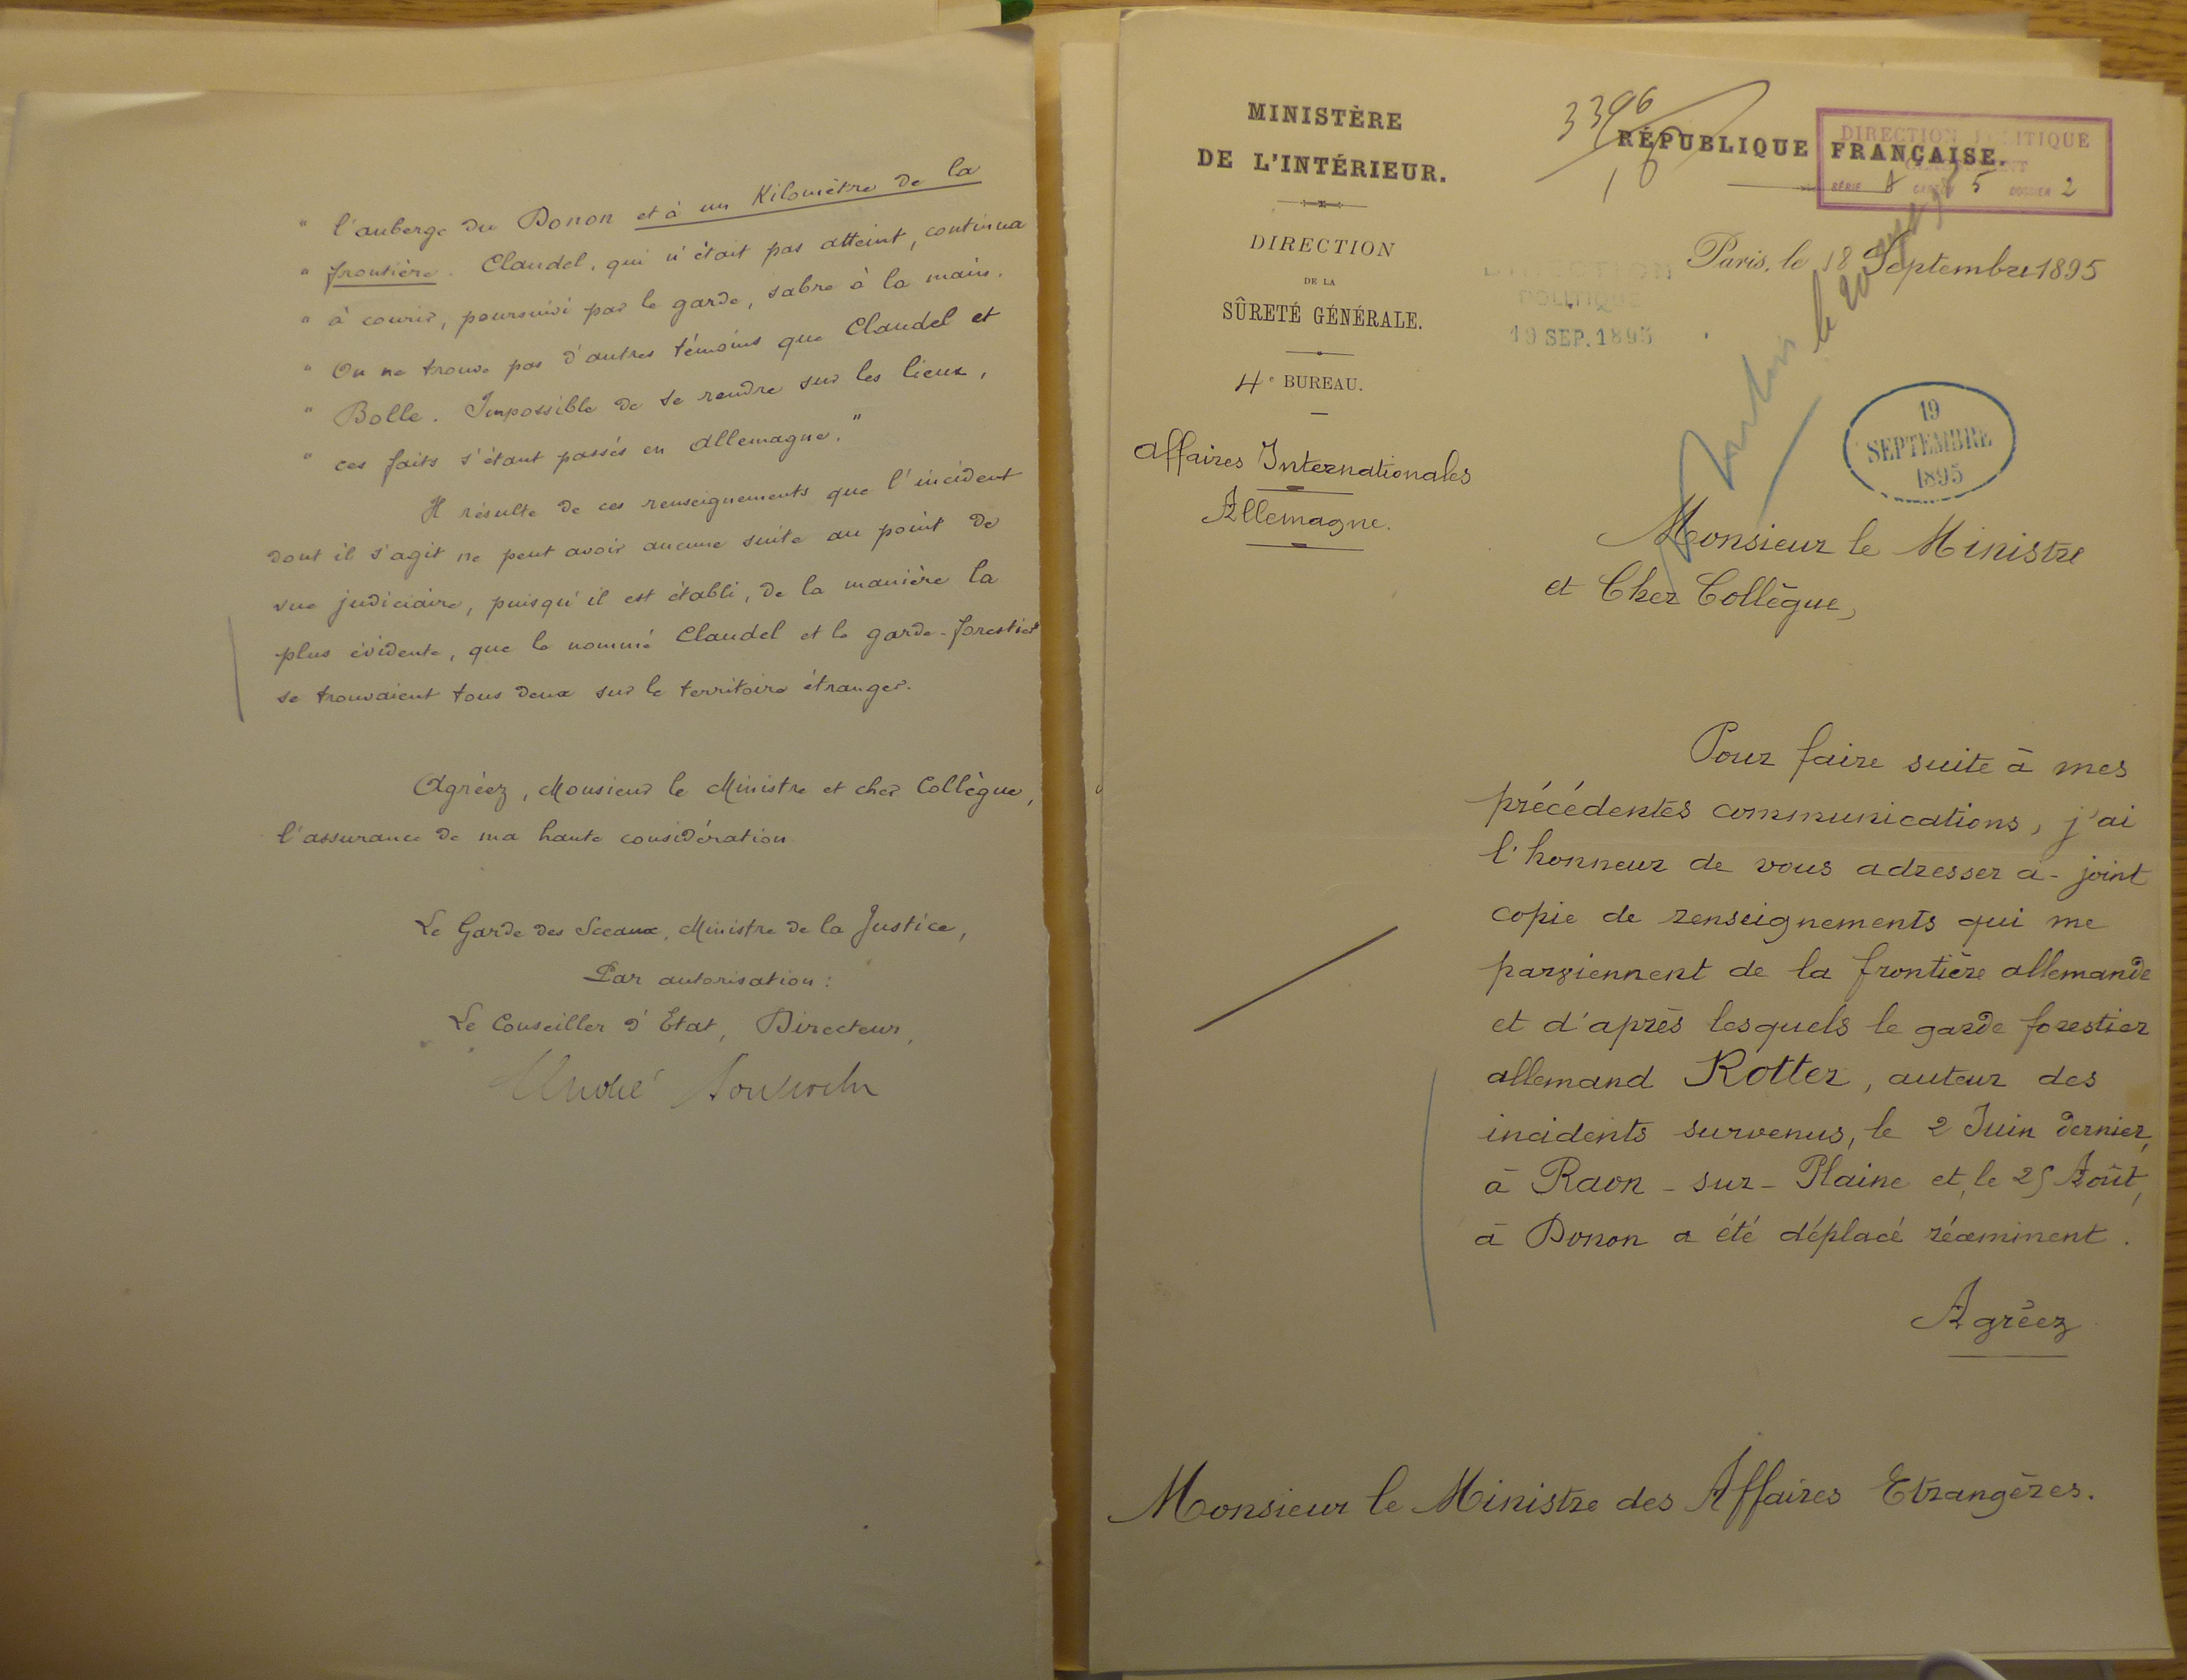 " l'auberge du Donon et à un Kilomètre de la
" frontière. Claudel, qui n'était pas atteint, continua
" à courir, poursuivi par le garde, sabre à la main.
" On ne trouve pas d'autres témoins que Claudel et
" Bolle. Impossible de se rendre sur les lieux,
" ces faits s'étant passés en Allemagne."
Il résulte de ces renseignements que l'incident
dont il s'agit ne peut avoir aucune suite au point de
vue judiciaire, puisqu'il est établi, de la manière la
plus évidente, que le nommé Claudel et le garde-forestier
se trouvaient tous deux sur le territoire étranger.
Agréez, Monsieur le Ministre et cher Collègue,
l'assurance de ma haute considération
Le Garde des Sceaux, Ministre de la Justice,
Par autorisation :
Le Conseiller d'Etat, Directeur,
André
MINISTÈRE
DE L'INTÉRIEUR.
DIRECTION
DE LA
SÛRETÉ GÉNÉRALE.
4e BUREAU.
Affaires Internationales
Allemagne.
3396
RÉPUBLIQUE FRANÇAISE.
DIRECTION POLITIQUE
SÉRIE A CARTON 5 DOSSIER 2
Paris, le 18 Septembre 1895
DIRECTION
POLITIQUE
19 SEP. 1895
le 20
19
SEPTEMBRE
1895
Monsieur le Ministre
et Cher Collègue,
Pour faire suite à mes
précédentes communications, j'ai
l'honneur de vous adresser ci-joint
copie de renseignements qui me
parviennent de la frontière allemande
et d'après lesquels le garde forestier
allemand Rotter, auteur des
incidents survenus, le 2 Juin dernier,
à Raon-sur-Plaine et, le 25 Août,
à Donon a été déplacé récemment.
Agréez
Monsieur le Ministre des Affaires Etrangères.